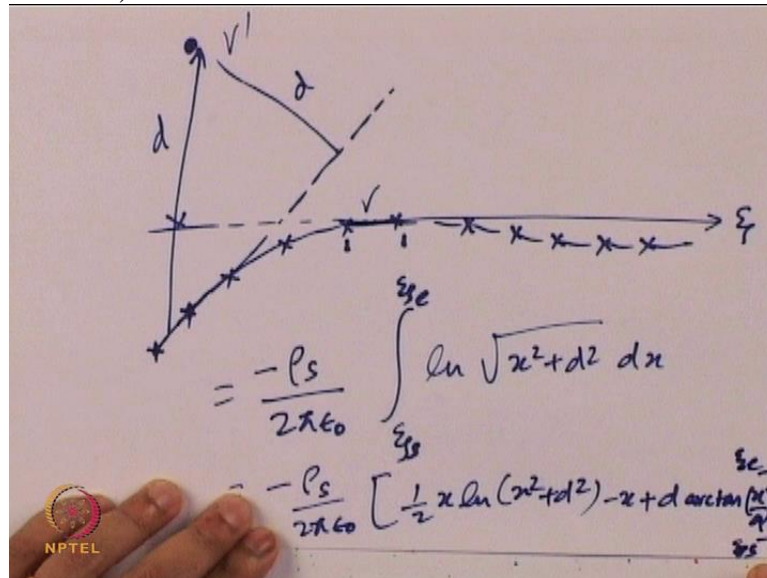 r'
d
d
r
ξ
= -ρs / 2πε0 ∫ ξs ξe ln √x²+d² dx
= -ρs / 2πε0 [ 1/2 x ln (x²+d²) -x + d arctan (x/d) ξe ξs
NPTEL